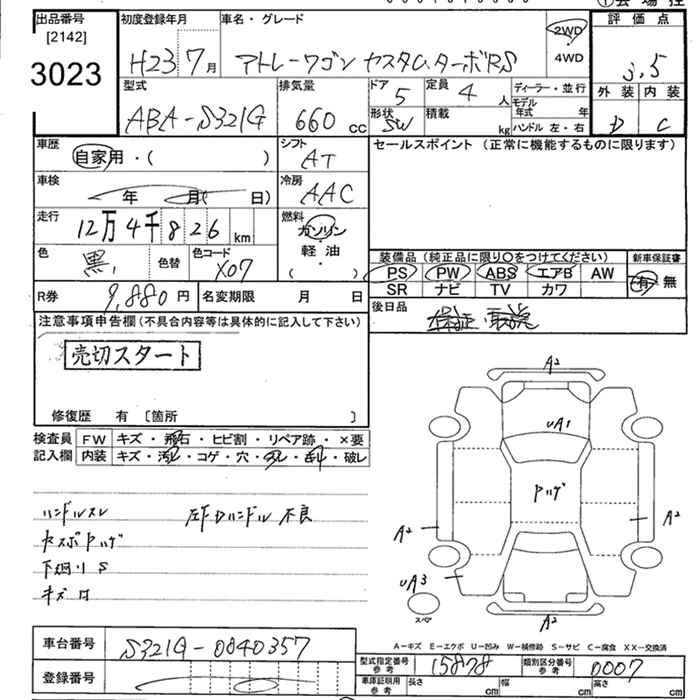 出品番号 初度登録年月 車名・グレード 評価点
[2142]
3023
H23 7月 アトレーワゴン カスタム.ターボRS 2WD 4WD 3.5
型式 排気量 ドア 5 定員 4 人 ディーラー・並行 外装 内装
ABA-S321G 660 cc 形状 SW 積載 kg モデル年式 年 ハンドル 左・右 D C
車歴 自家用・( ) シフト AT セールスポイント (正常に機能するものに限ります)
車検 年 月( 日) 冷房 AAC
走行 12万4千826 km 燃料 ガソリン・軽油・( )
色 黒 色替 色コード X07
装備品 (純正品に限り○をつけてください) 新車保証書
PS PW ABS エアB AW 有・無
SR ナビ TV カワ
R券 9,880円 名変期限 月 日
後日品 保証・取説
注意事項申告欄(不具合内容等は具体的に記入して下さい)
売切スタート
修復歴 有 [箇所 ]
検査員 FW キズ・飛石・ヒビ割・リペア跡・×要
記入欄 内装 キズ・汚レ・コゲ・穴・スレ・切レ・破レ
ハンドルスレ 左FDハンドル不良
下廻りS
A2
uA1
Pハゲ
A2
A2
uA3
スペア
A2
A-キズ E-エクボ U-凹み W-補修跡 S-サビ C-腐食 XX-交換済
車台番号 S321G-0840357
型式指定番号 参考 15878 類別区分番号 参考 0007
登録番号
車庫証明用 参考 長さ cm 幅 cm 高さ cm